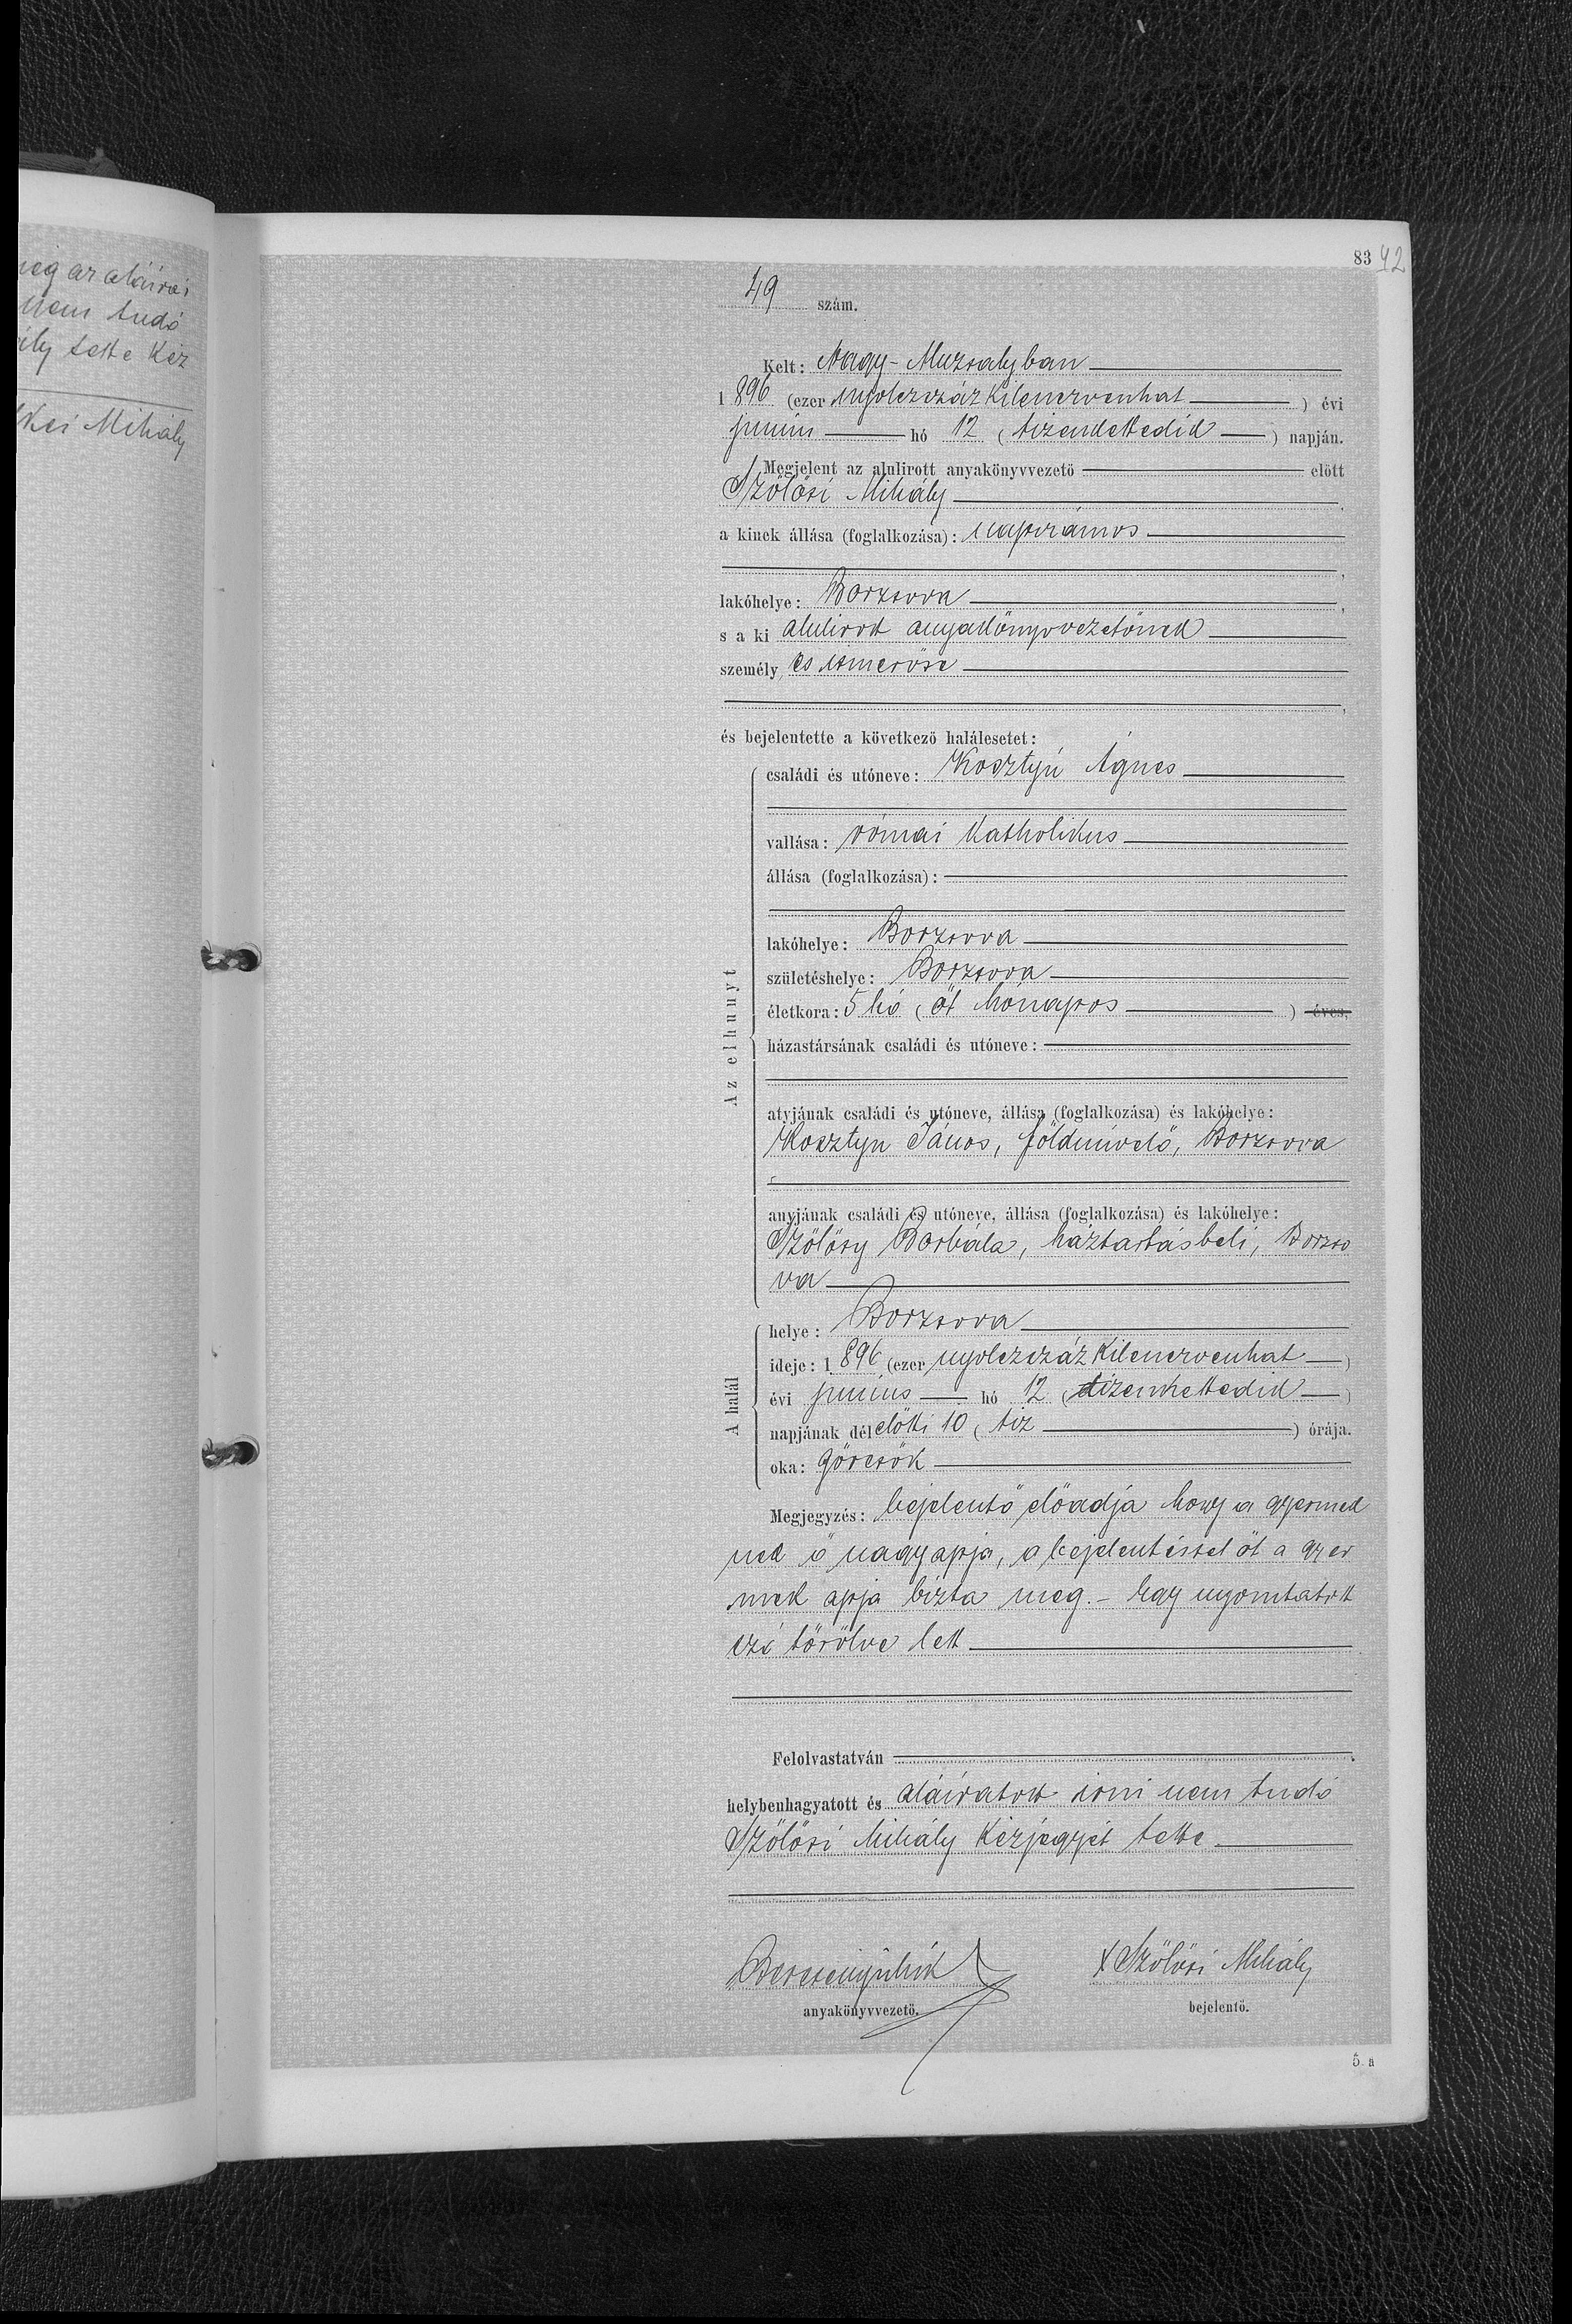 meg az aláirai
nem tudó
ály tette kéz
kei Mihály
83 42
49 szám.
Kelt: Nagy-Muzsalyban
1896 (ezer nyolczszázkilenczvenhat) évi
junius hó 12 (tizenkettedik) napján.
Megjelent az alulirott anyakönyvvezető előtt
Szőlősi Mihály
a kinek állása (foglalkozása): napszámos
lakóhelye: Borzsova
s a ki alulirott anyakönyvvezetőnek
személyes ismerőse
és bejelentette a következő halálesetet:
Az elhunyt
családi és utóneve: Kosztyú Ágnes
vallása: római katholikus
állása (foglalkozása):
lakóhelye: Borzsova
születéshelye: Borzsova
életkora: 5 hó (öt hónapos) éves,
házastársának családi és utóneve:
atyjának családi és utóneve, állása (foglalkozása) és lakóhelye:
Kosztyu János, földmivelő, Borzsova
anyjának családi és utóneve, állása (foglalkozása) és lakóhelye:
Szőlősy Borbála, háztartásbeli, Borzso
va
A halál
helye: Borzsova
ideje: 1896 (ezer nyolczszázkilenczvenhat)
évi junius hó 12 (tizenkettedik)
napjának délelőtti 10 (tiz) órája.
oka: görcsök
Megjegyzés: bejelentő előadja hogy a gyermek
nek ő nagyapja, a bejelentéssel őt a gyer
mek apja bizta meg. - Egy nyomtatott
szó törölve lett
Felolvastatván
helybenhagyatott és aláiratott irni nem tudó
Szőlősi Mihály kézjegyét tette
anyakönyvvezető.
x Szőlősi Mihály
bejelentő.
5. a